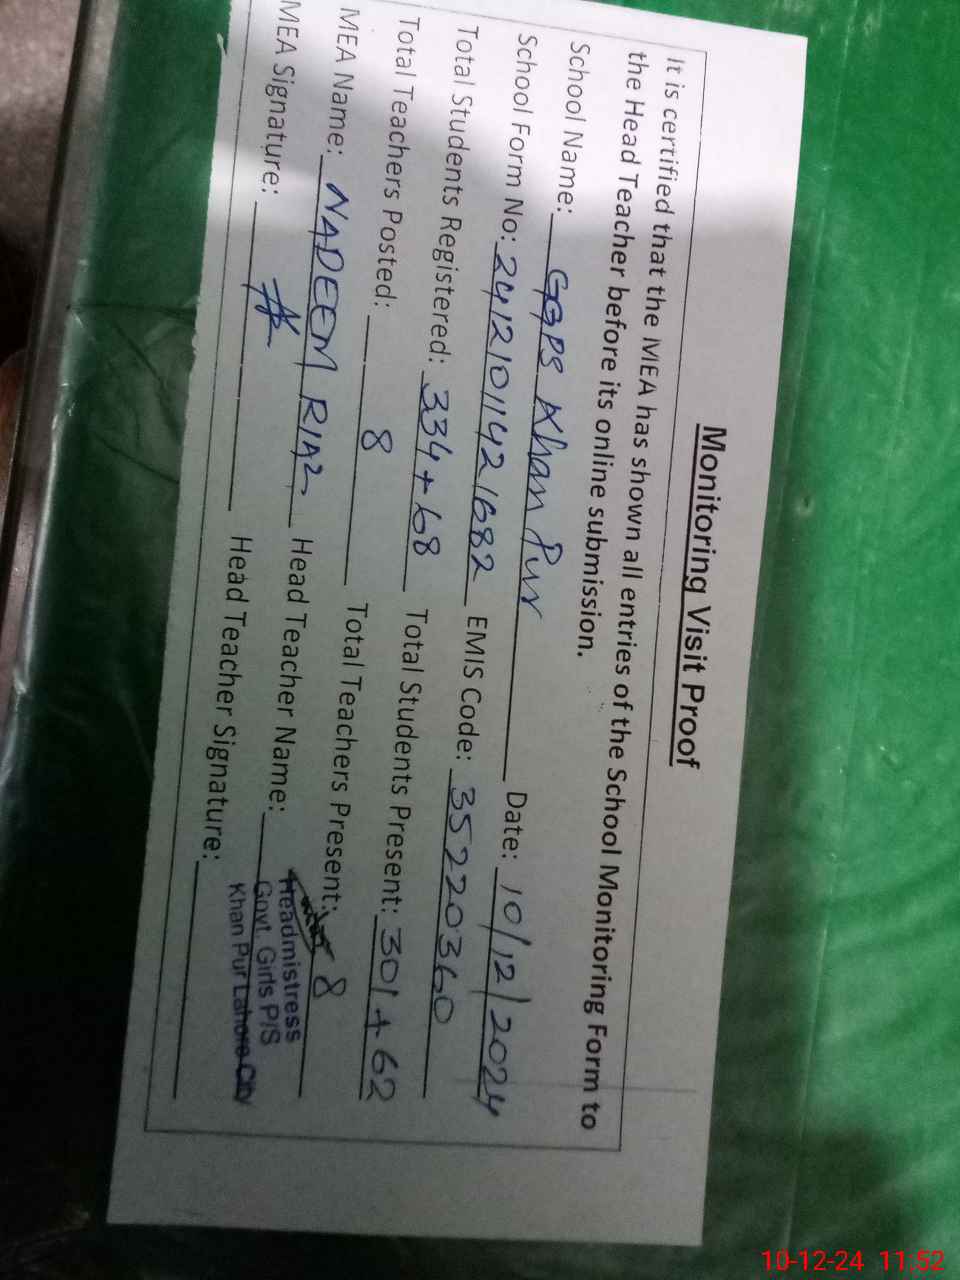 Monitoring Visit Proof
It is certified that the MEA has shown all entries of the School Monitoring Form to
the Head Teacher before its online submission.
School Name: GGPS Khan Pur Date: 10/12/2024
School Form No: 241210114216 82 EMIS Code: 35220360
Total Students Registered: 334 + 68 Total Students Present: 301 + 62
Total Teachers Posted: 8 Total Teachers Present: 8
MEA Name: NADEEM RIAZ Head Teacher Name:
MEA Signature: Head Teacher Signature:
Headmistress
Govt. Girls P/S
Khan Pur Lahore City
10-12-24 11:52